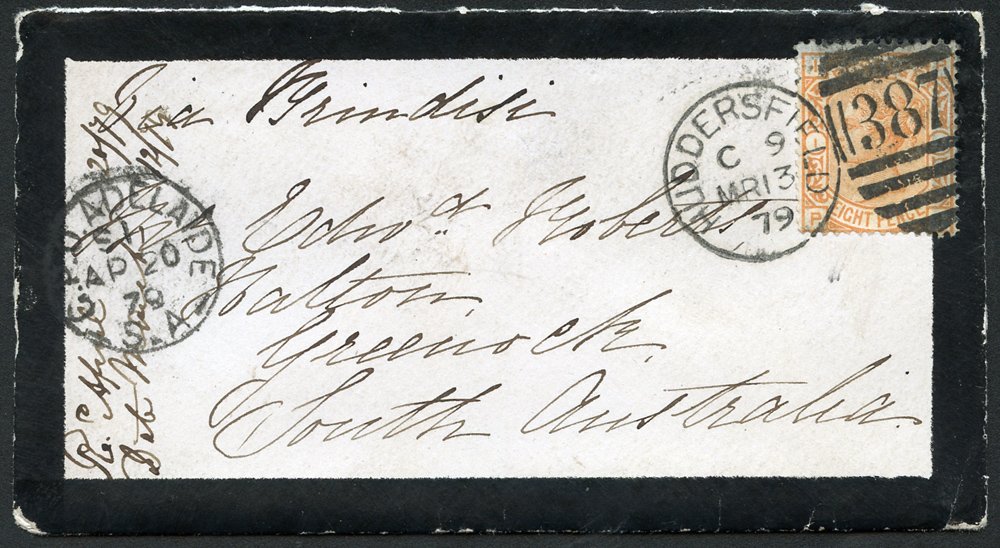 Via Brindisi
Mr Edwd. Roberts,
Halton,
Greenock.
South Australia.
HUDDERSFIELD
C 9
MR 13
79
387
EIGHT PENCE
G.P.O. ADELAIDE
AP 20
79
S.A
Recd April 20/79
Date